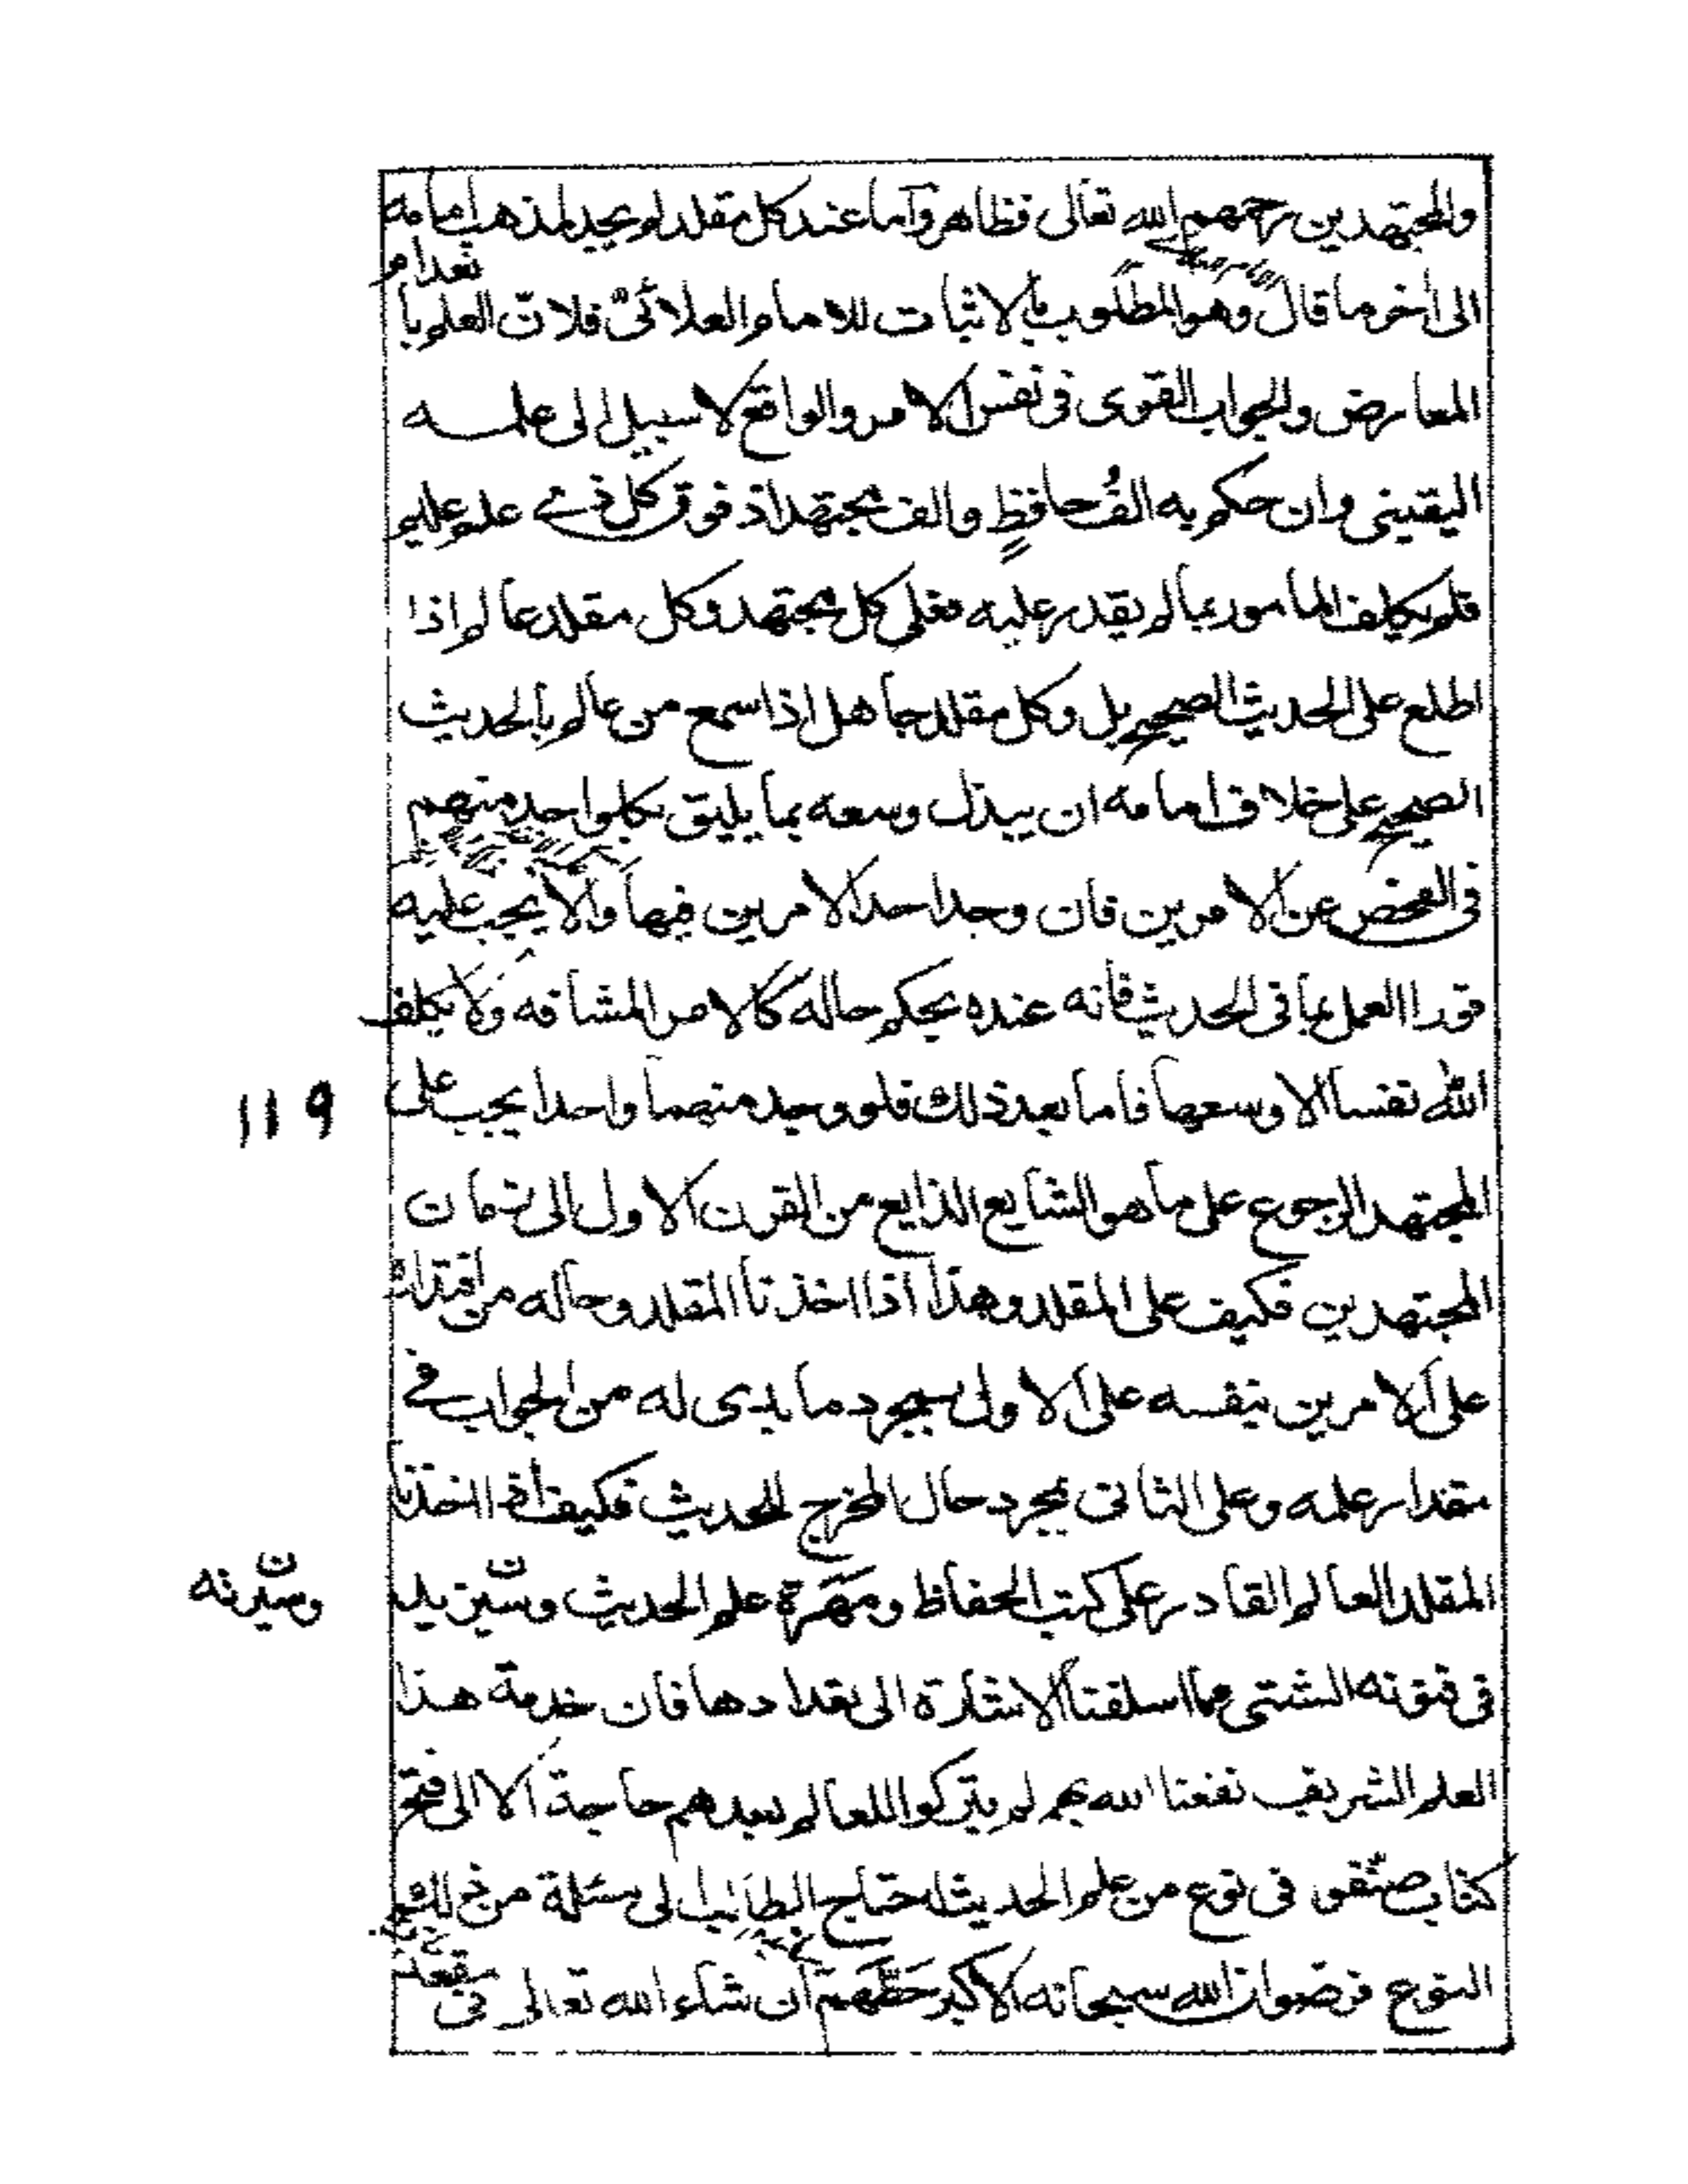 والمجتهدين رحمهم الله تعالى فظاهر وآما عند كل مقلد لم يجد لمذهب امامه
الى آخر ما قال وهو المطلوب بالاثبات للامام العلائىّ فلانّ العلم بانعدام
المعارض والجواب القوى فى نفس الامر والواقع لا سبيل الى علمه
اليقينى وان حكم به الفُ حافظٍ والف مجتهد اذ فوق كل ذى علم عليم
فلم يكلف المامور بما لم يقدر عليه فعلى كل مجتهد وكل مقلد عالم اذا
اطلع على الحديث الصحيح بل وكل مقلد جاهل اذا سمع من عالم بالحديث
الصحيح على خلاف امامه ان يبذل وسعه بما يليق بكل واحد منهم
فى الفحص عن الامرين فان وجد احد الامرين فبها والا يجب عليه
فورا العمل بما فى الحديث فانه عنده بحكم حاله كالامر المشافه ولا يكلف
الله نفسا الا وسعها فاما بعد ذلك فلو وجد منهما واحدا يجب على
119
المجتهد الرجوع على ما هو الشايع الذايع من القرن الاول الى زمان
المجتهدين فكيف على المقلد وهذا اذا اخذنا المقلد وحاله من اقتداره
على الامرين بنفسه على الاولى بمجرد ما يدى له من الجواب فى
مقدار علمه وعلى الثانى بمجرد حال المخرج للحديث فكيف اذا اخذنا
المقلد العالم القادر على كتب الحفاظ ومَهَرة علم الحديث
فى فنونه الشتى مما اسلفنا الاشارة الى تعدادها فان خدمة هذا
العلم الشريف نفعنا الله بهم لم يتركوا للعالم بعدهم حاجة الا الى فتح
كتاب صنّفو فى نوع من علم الحديث احتاج الطالب الى مسئلة من ذلك
النوع فرضوان الله سبحانه الاكبر حَظّهم ان شاء الله تعالى فى